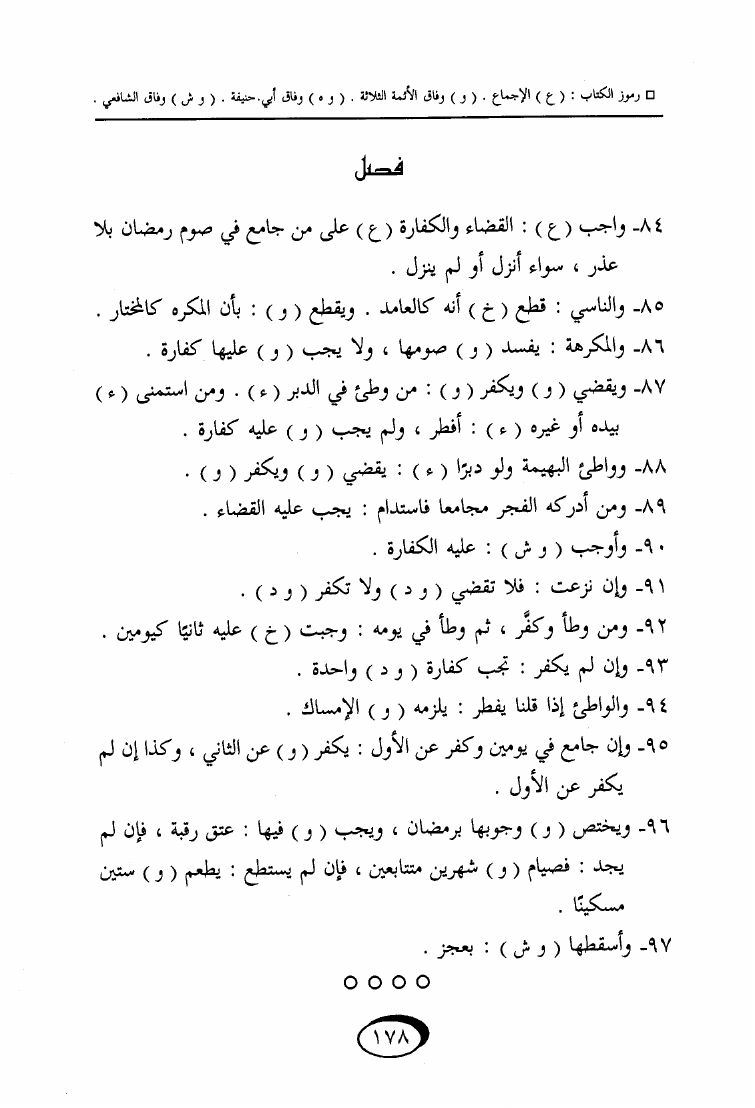 □ رموز الكتاب : ( ع ) الإجماع . ( و ) وفاق الأئمة الثلاثة . ( و ه ) وفاق أبي حنيفة . ( و ش ) وفاق الشافعي .
فصل
٨٤ـ واجب ( ع ) : القضاء والكفارة ( ع ) على من جامع في صوم رمضان بلا
عذر ، سواء أنزل أو لم ينزل .
٨٥ـ والناسي : قطع ( خ ) أنه كالعامد . ويقطع ( و ) : بأن المكره كالمختار .
٨٦ـ والمكرهة : يفسد ( و ) صومها ، ولا يجب ( و ) عليها كفارة .
٨٧ـ ويقضي ( و ) ويكفر ( و ) : من وطئ في الدبر ( ء ) . ومن استمنى ( ء )
بيده أو غيره ( ء ) : أفطر ، ولم يجب ( و ) عليه كفارة .
٨٨ـ وواطئ البهيمة ولو دبرًا ( ء ) : يقضي ( و ) ويكفر ( و ) .
٨٩ـ ومن أدركه الفجر مجامعا فاستدام : يجب عليه القضاء .
٩٠ـ وأوجب ( و ش ) : عليه الكفارة .
٩١ـ وإن نزعت : فلا تقضي ( و د ) ولا تكفر ( و د ) .
٩٢ـ ومن وطأ وكفَّر ، ثم وطأ في يومه : وجبت ( خ ) عليه ثانيًا كيومين .
٩٣ـ وإن لم يكفر : تجب كفارة ( و د ) واحدة .
٩٤ـ والواطئ إذا قلنا يفطر : يلزمه ( و ) الإمساك .
٩٥ـ وإن جامع في يومين وكفر عن الأول : يكفر ( و ) عن الثاني ، وكذا إن لم
يكفر عن الأول .
٩٦ـ ويختص ( و ) وجوبها برمضان ، ويجب ( و ) فيها : عتق رقبة ، فإن لم
يجد : فصيام ( و ) شهرين متتابعين ، فإن لم يستطع : يطعم ( و ) ستين
مسكينًا .
٩٧ـ وأسقطها ( و ش ) : بعجز .
○ ○ ○ ○
١٧٨